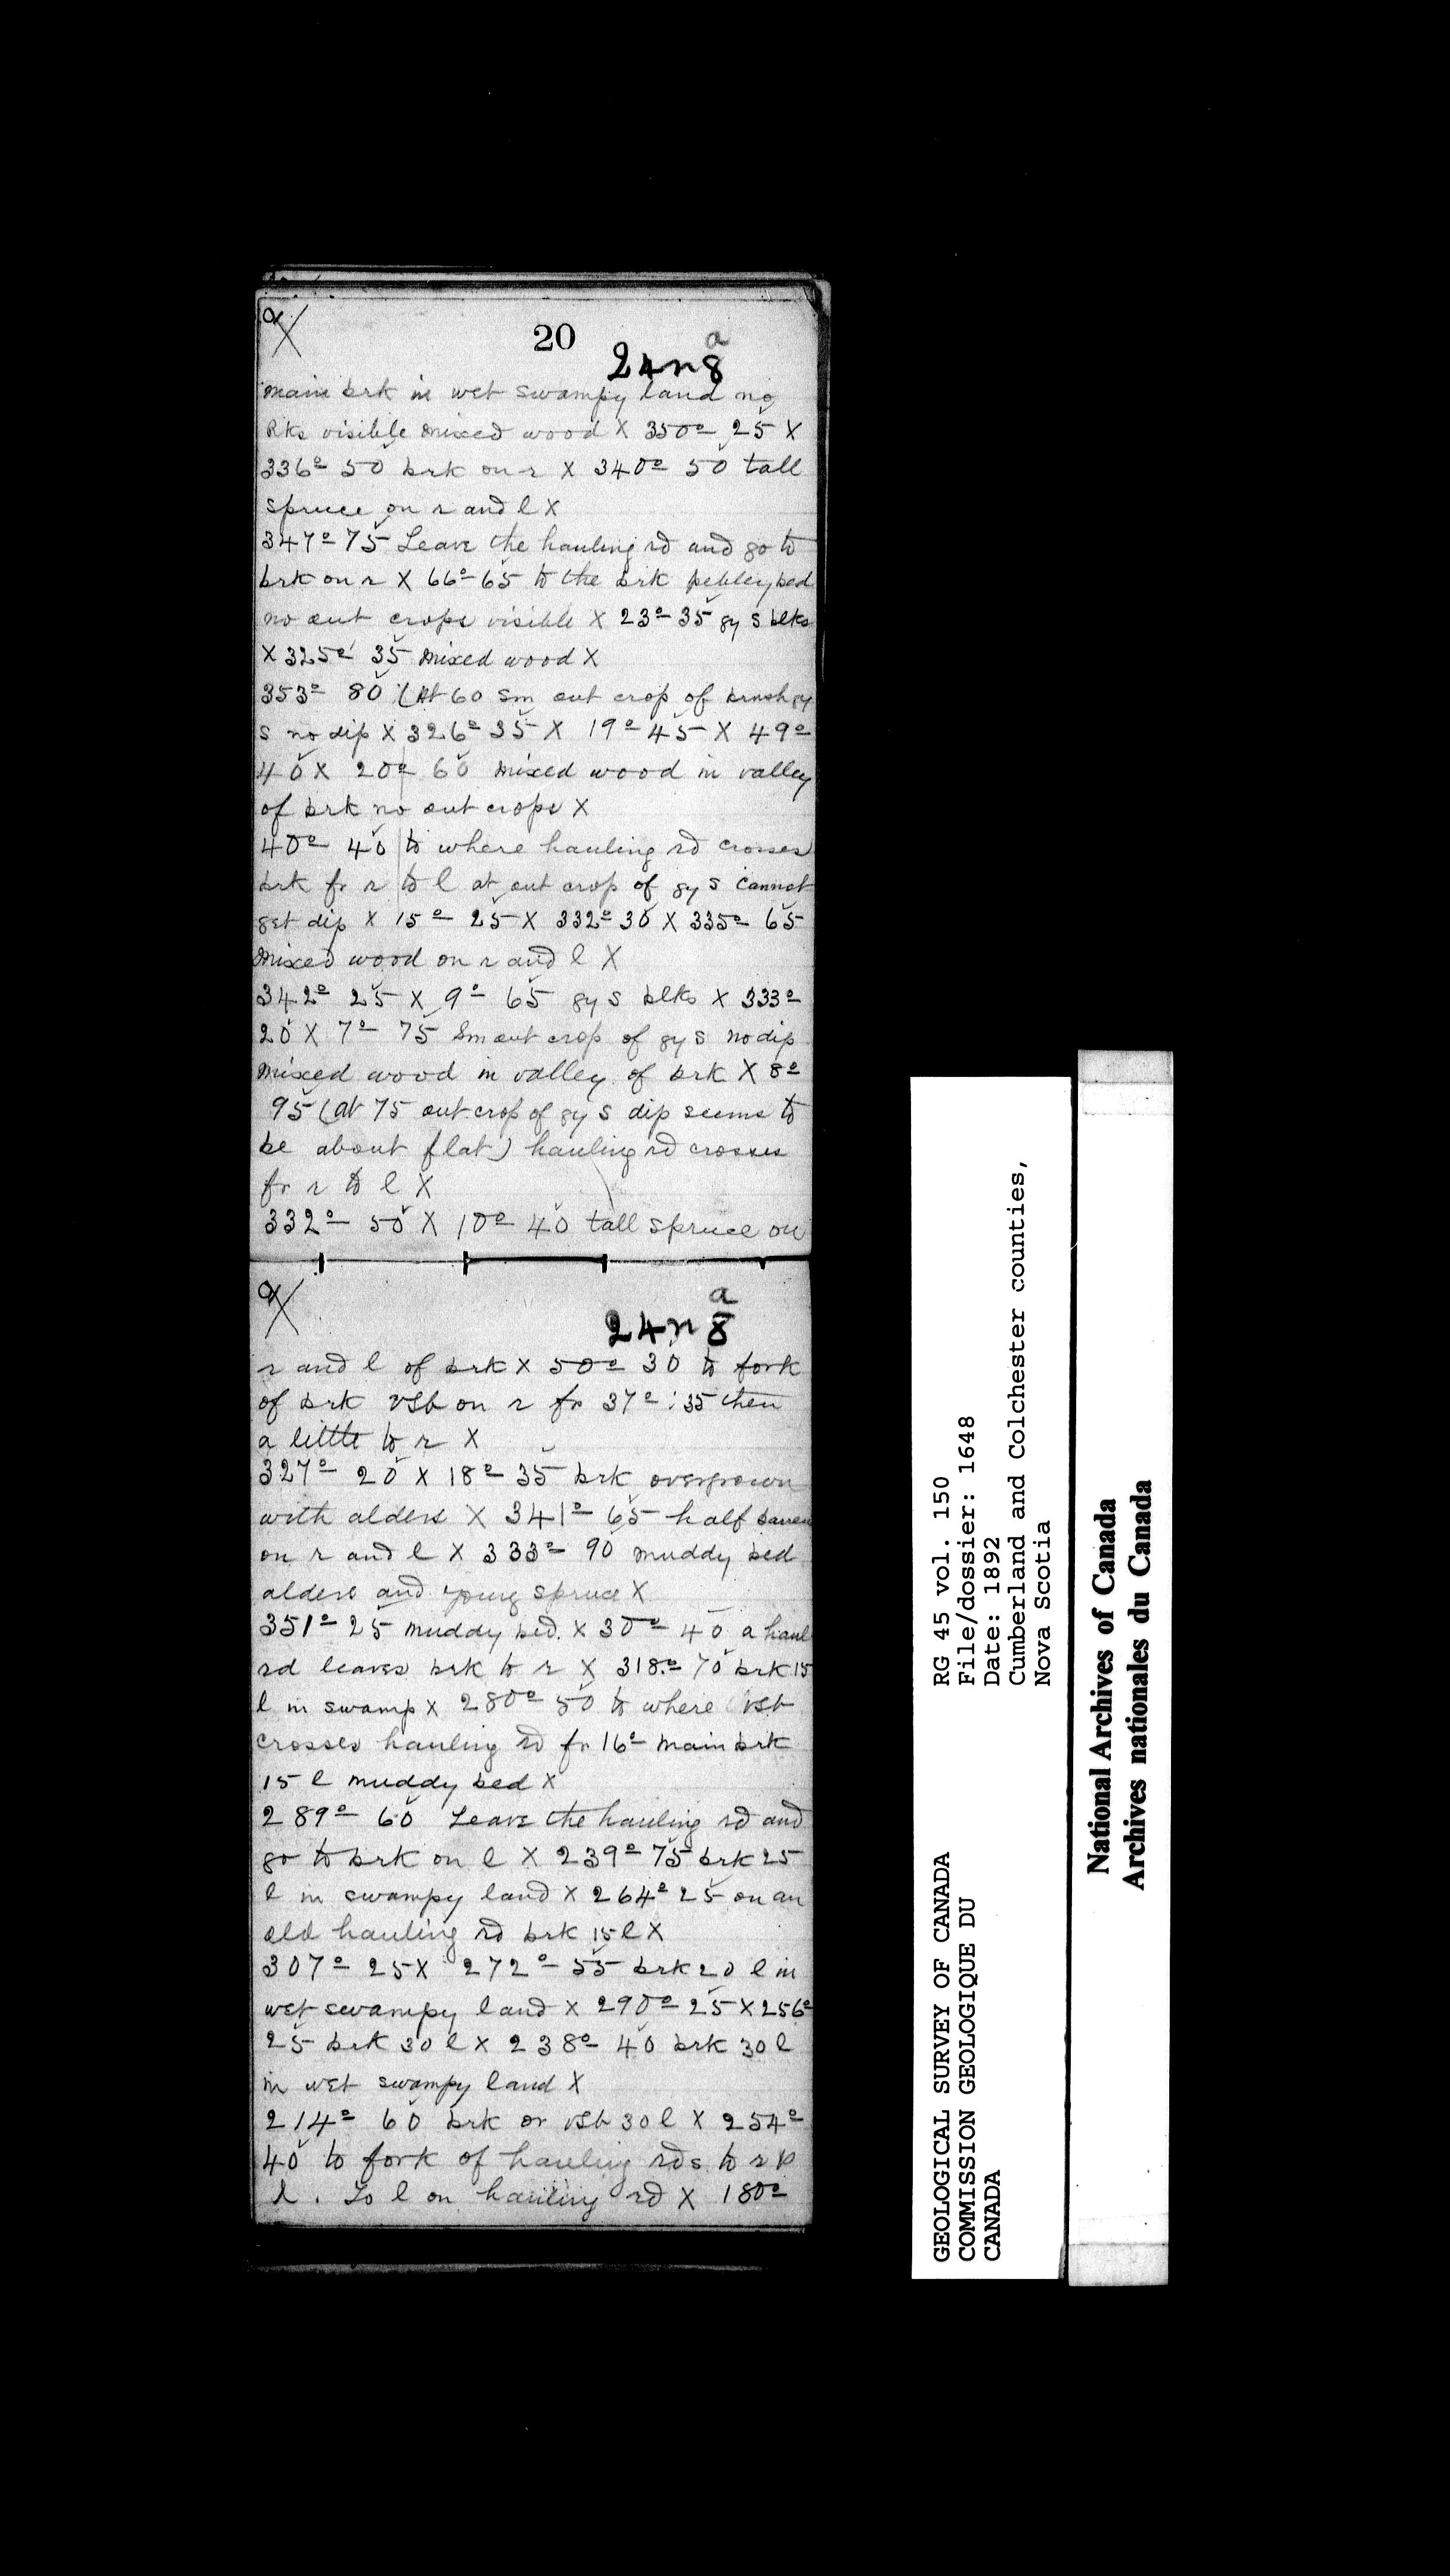 a X
20
24n8 a
main brk in wet swampy land no
Rks visible mixed wood X 350º 25 X
336º 50 brk on r X 340º 50 tall
spruce on r and l X
347º 75 Leave the hauling rd and go to
brk on r X 66º 65 to the brk pebbley bed
no out crops visible X 23º 35 gy s blks
X 325º 35 mixed wood X
353º 80 (At 60 sm out crop of gy
s no dip X 326º 35 X 19º 45 X 49º
40 X 20º 60 mixed wood in valley
of brk no out crops X
40º 40 to where hauling rd crosses
brk fr r to l at out crop of gy s cannot
get dip X 15º 25 X 332º 30 X 335º 65
Mixed wood on r and l X
342º 25 X 9º 65 gy s blks X 333º
20 X 7º 75 Sm out crop of gy s no dip
mixed wood in valley of brk X 8º
95 (at 75 out crop of gy s dip seems to
be about flat) hauling rd crosses
fr r to l X
332º 50 X 10º 40 tall spruce on
a X
24n8 a
r and l of brk X 50º 30 to fork
of brk vsb on r fr 37º : 35 then
a little to r X
327º 20 X 18º 35 brk overgrown
with alders X 341º 65 half barren
on r and l X 333º 90 muddy bed
alders and young spruce X
351º 25 muddy bed. X 30º 40 a haul
rd leaves brk to r X 318º 70 brk 15
l in swamp X 280º 50 to where vsb
crosses hauling rd fr 16º main brk
15 l muddy bed X
289º 60 Leave the hauling rd and
go to brk on l X 239º 75 brk 25
l in swampy land X 264º 25 on an
old hauling rd brk 15 l X
307º 25 X 272º 55 brk 20 l in
wet swampy land X 290º 25 X 256º
25 brk 30 l X 238º 40 brk 30 l
in wet swampy land X
214º 60 brk or vsb 30 l X 254º
40 to fork of hauling rds to r &
l. To l on hauling rd X 180º
GEOLOGICAL SURVEY OF CANADA
COMMISSION GEOLOGIQUE DU
CANADA
RG 45 vol. 150
File/dossier: 1648
Date: 1892
Cumberland and Colchester counties,
Nova Scotia
National Archives of Canada
Archives nationales du Canada